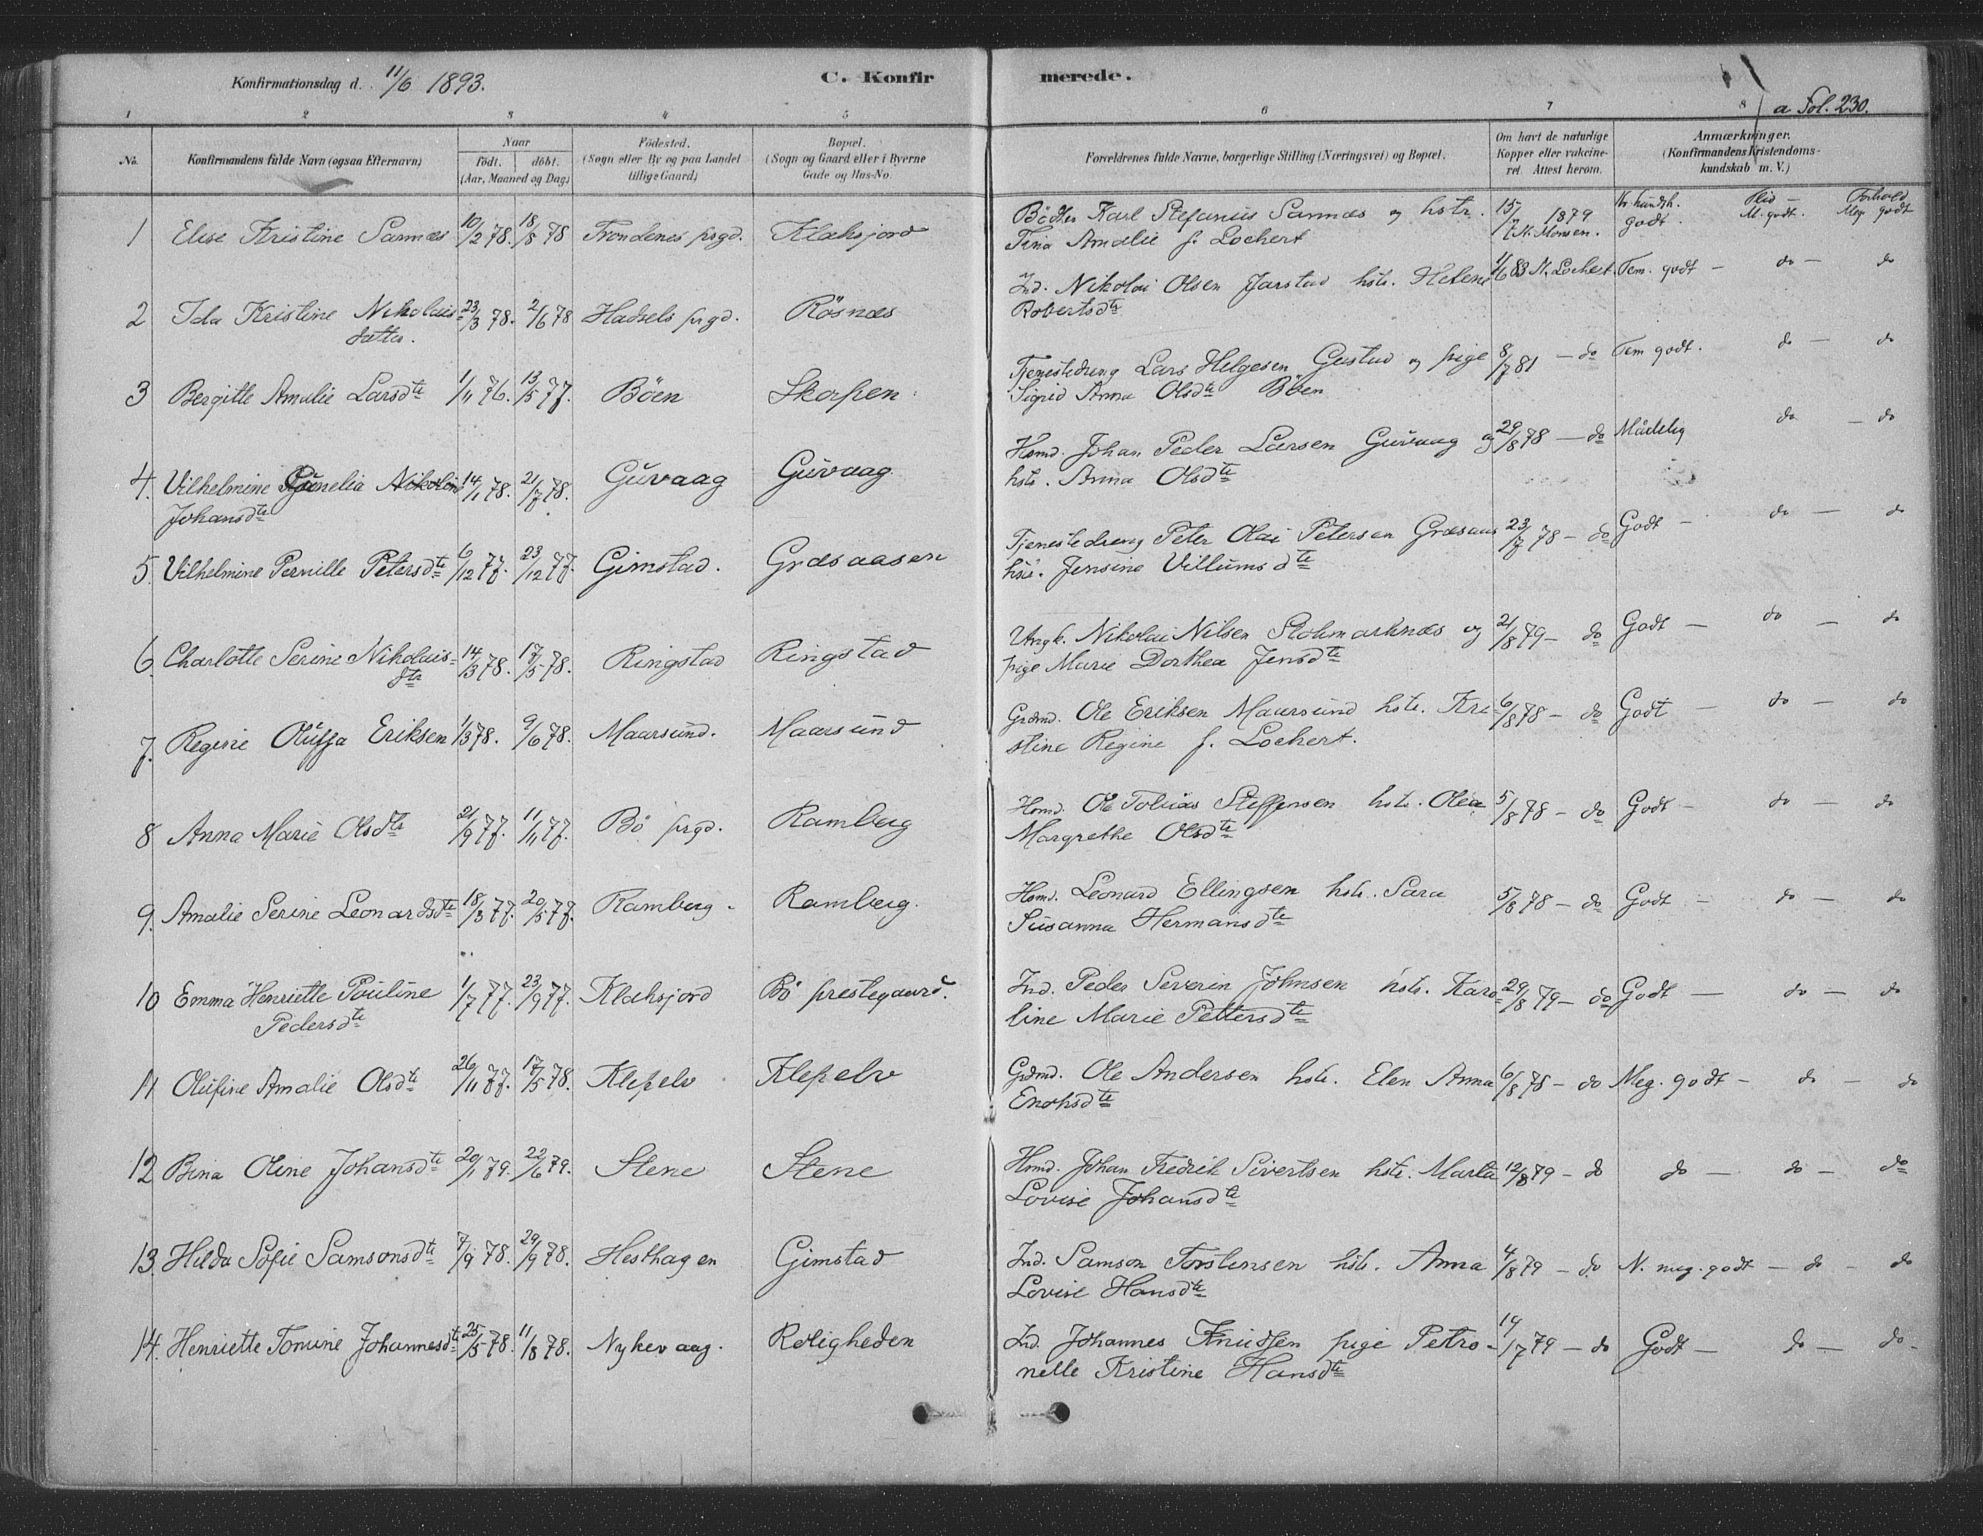 Konfirmationsdag d. 11/6 1893. C. Konfirmerede. a Fol. 230.
1 2 3 4 5 6 7 8
No. Konfirmandens fulde Navn (ogsaa Efternavn) Naar født. døbt. (Aar, Maaned og Dag) Fødested. (Sogn eller By og paa Landet tillige Gaard) Bopæl. (Sogn og Gaard eller i Byerne Gade og Hus-No. Forældrenes fulde Navne, borgerlige Stilling (Næringsvei) og Bopæl. Om havt de naturlige Kopper eller vakcineret. Attest herom. Anmærkninger. (Konfirmandens Kristendomskundskab m. V.)
Kr. kundsk. Flid – Forhold
1 Elise Kristine Sannæs 10/2 78. 18/8 78 Trondenes prgd. Klaksjord Bødker Karl Stefanius Sannæs og hstr. 15/7 1879 godt. M. godt. Meg. godt
Tina Amalie f. Lochert N. Monsen.
2 Ida Kristine Nikolais- 23/3 78. 2/6 78 Hadsels prgd. Rösnæs Ind. Nikolai Olsen Jarstad hstr. Helene 4/6 83 N. Lochert. Tem. godt – do – do
datter. Robertsdtr
3 Bergitte Amalie Larsdtr 1/11 76. 13/5 77. Böen Skorpen Tjenestedreng Lars Helgesen Gustad og pige 8/7 81 – do Tem godt. do – do
Sigrid Anna Olsdtr Böen
4. Vilhelmine Nikolai 14/1 78. 21/7 78. Guvaag Guvaag. Hsmd. Johan Peder Larsen Guvaag og 29/8 78 – do Mådelig do – do
Johansdtr hstr. Anna Olsdtr
5. Vilhelmine Pernille Petersdtr 6/12 77. 23/12 77. Gimstad. Græsaasen Tjenestedreng Peter Olai Petersen Græsaas 23/7 78 – do Godt – do – do
hstr. Jensine Villumsdtr
6. Charlotte Serine Nikolais- 14/3 78. 17/5 78. Ringstad Ringstad Ungk. Nikolai Nilsen Stokmarknæs og 21/8 79 – do Godt – do – do
dtr pige Marie Dorthea Jensdtr
7. Regine Oluffa Eriksen 1/3 78. 9/6 78. Maarsund. Maarsund Grdmd. Ole Eriksen Maarsund hstr. Kri- 6/8 78 – do Godt – do – do
stine Regine f. Lochert.
8 Anna Marie Olsdtr 21/9 77. 11/11 77. Bö prgd. Ramberg Hsmd. Ole Tobias Steffensen hstr. Olea 5/8 78 – do Godt – do – do
Margrethe Olsdtr
9. Amalie Serine Leonardsdtr 18/3 77. 20/5 77. Ramberg. Ramberg. Hsmd. Leonard Ellingsen hstr. Sara 5/8 78 – do Godt – do – do
Susanna Hermansdtr
10 Emma Henriette Pouline 1/7 77. 23/9 77. Klaksjord Bö prestegaard. Ind. Peder Severin Johnsen hstr. Karo- 29/8 79 – do Godt – do – do
Pedersdtr line Marie Pettersdtr
11 Olufine Amalie Olsdtr 26/11 77. 17/5 78. Klepelv Klepelv Grdmd. Ole Andersen hstr. Elen Anna 6/8 78 – do Meg. godt – do – do
Enoksdtr
12 Bina Oline Johansdtr 20/1 79. 22/6 79. Stene Stene Hsmd. Johan Fredrik Sivertsen hstr. Marta 12/8 79 – do do – do – do
Lovise Johansdtr
13. Hilda Sofie Samsonsdtr 7/9 78. 29/9 78. Hesthagen Gimstad Ind. Samson Torstensen hstr. Anna 4/8 79 – do N. meg. godt – do – do
Lovise Hansdtr
14. Henriette Tomine Johannesdtr 25/5 78. 11/8 78. Nykevaag. Roligheden Ind. Johannes Knudsen pige Petro- 19/7 79 – do Godt – do – do
nelle Kristine Hansdtr